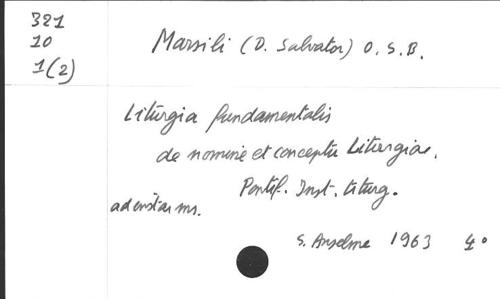 321
10
1(2)
Marsili (D. Salvator) O.S.B.
Liturgia fundamentalis
de nomine et conceptu Liturgiae.
Pontif. Inst. Liturg.
ad instar ms.
S. Anselme 1963 4°